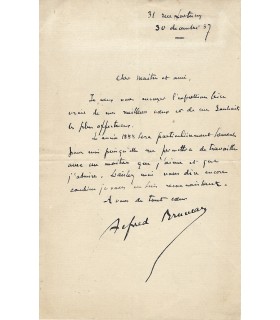 30 décembre 87
Cher maître et ami,
Je veux vous envoyer l'expression bien
vraie de mes meilleurs vœux et de mes souhaits
les plus affectueux.
L'année 1888 sera particulièrement
pour moi puisqu'elle me permettra de travailler
avec un maître que j'aime et que
j'admire. Laissez moi vous dire encore
combien je vous en suis reconnaissant.
A vous de tout cœur
Alfred Bruneau